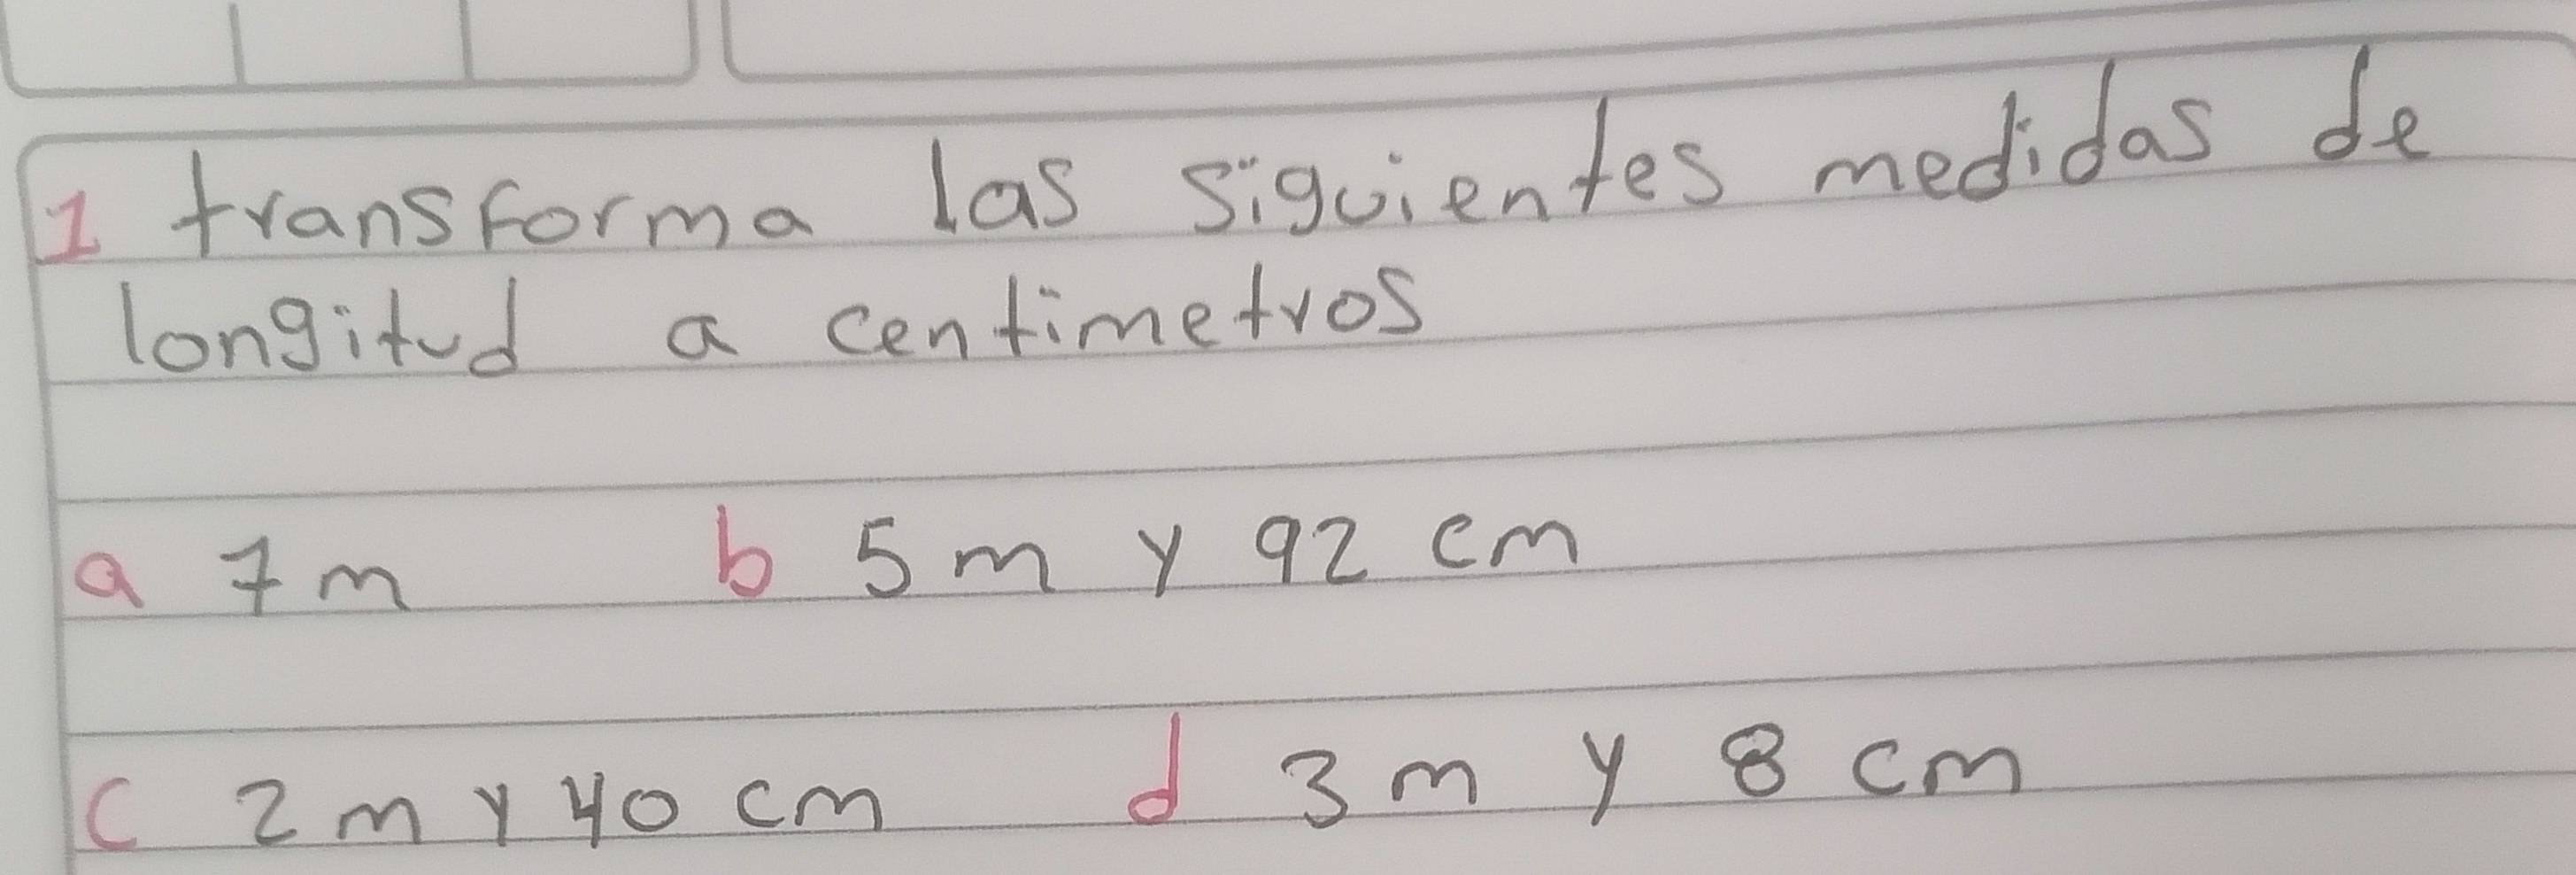 1 transforma las siguientes medidas de
longitud a centimetros
a 7 m b 5 m y 92 cm
c 2 m y 40 cm d 3 m y 8 cm